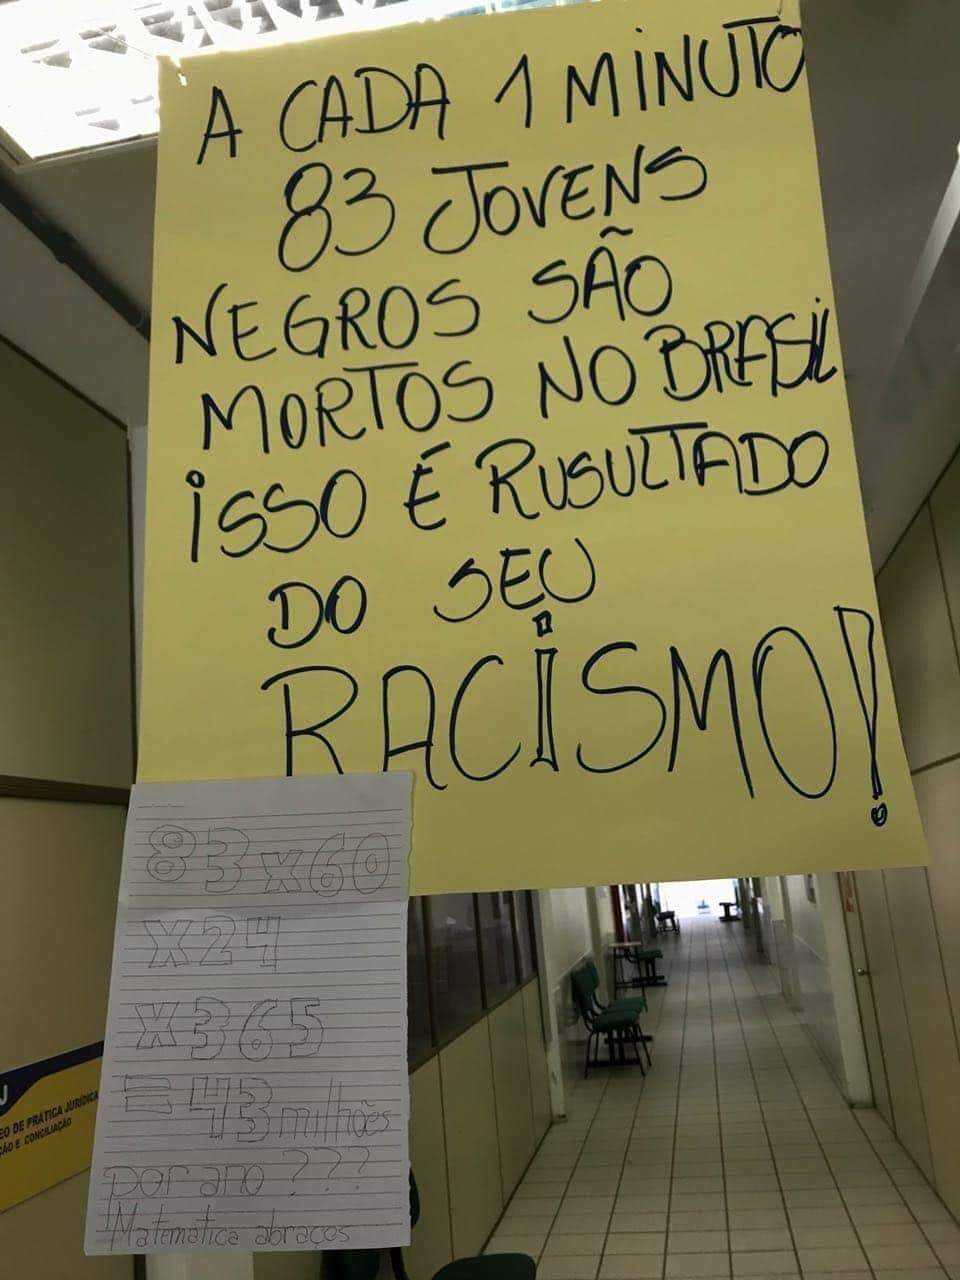 A CADA 1 MINUTO
83 JOVENS
NEGROS SÃO
MORTOS NO BRASIL
ISSO É RUSULTADO
DO SEU
RACISMO!
83 x 60
X 24
X 365
= 43 milhões
por ano ???
Matematica abraços
EO DE PRÁTICA JURÍDICA
ÇÃO E CONCILIAÇÃO